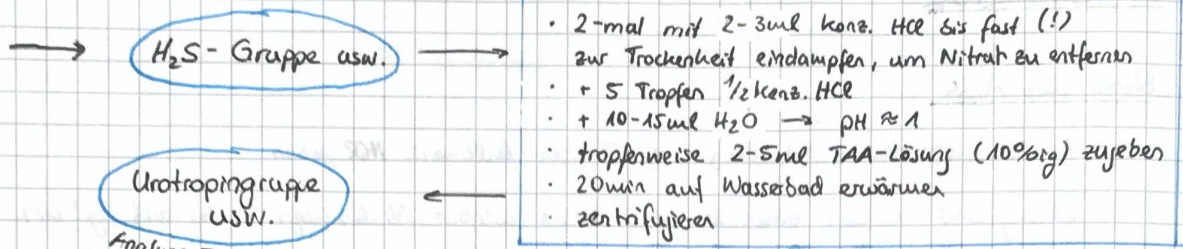 H₂S - Gruppe usw.
· 2-mal mit 2-3ml konz. HCl bis fast (!)
zur Trockenheit eindampfen, um Nitrat zu entfernen
· + 5 Tropfen 1/2 konz. HCl
· + 10-15ml H₂O → pH ≈ 1
· tropfenweise 2-5ml TAA-Lösung (10%ig) zugeben
· 20min auf Wasserbad erwärmen
· zentrifugieren
Urotropingruppe
usw.